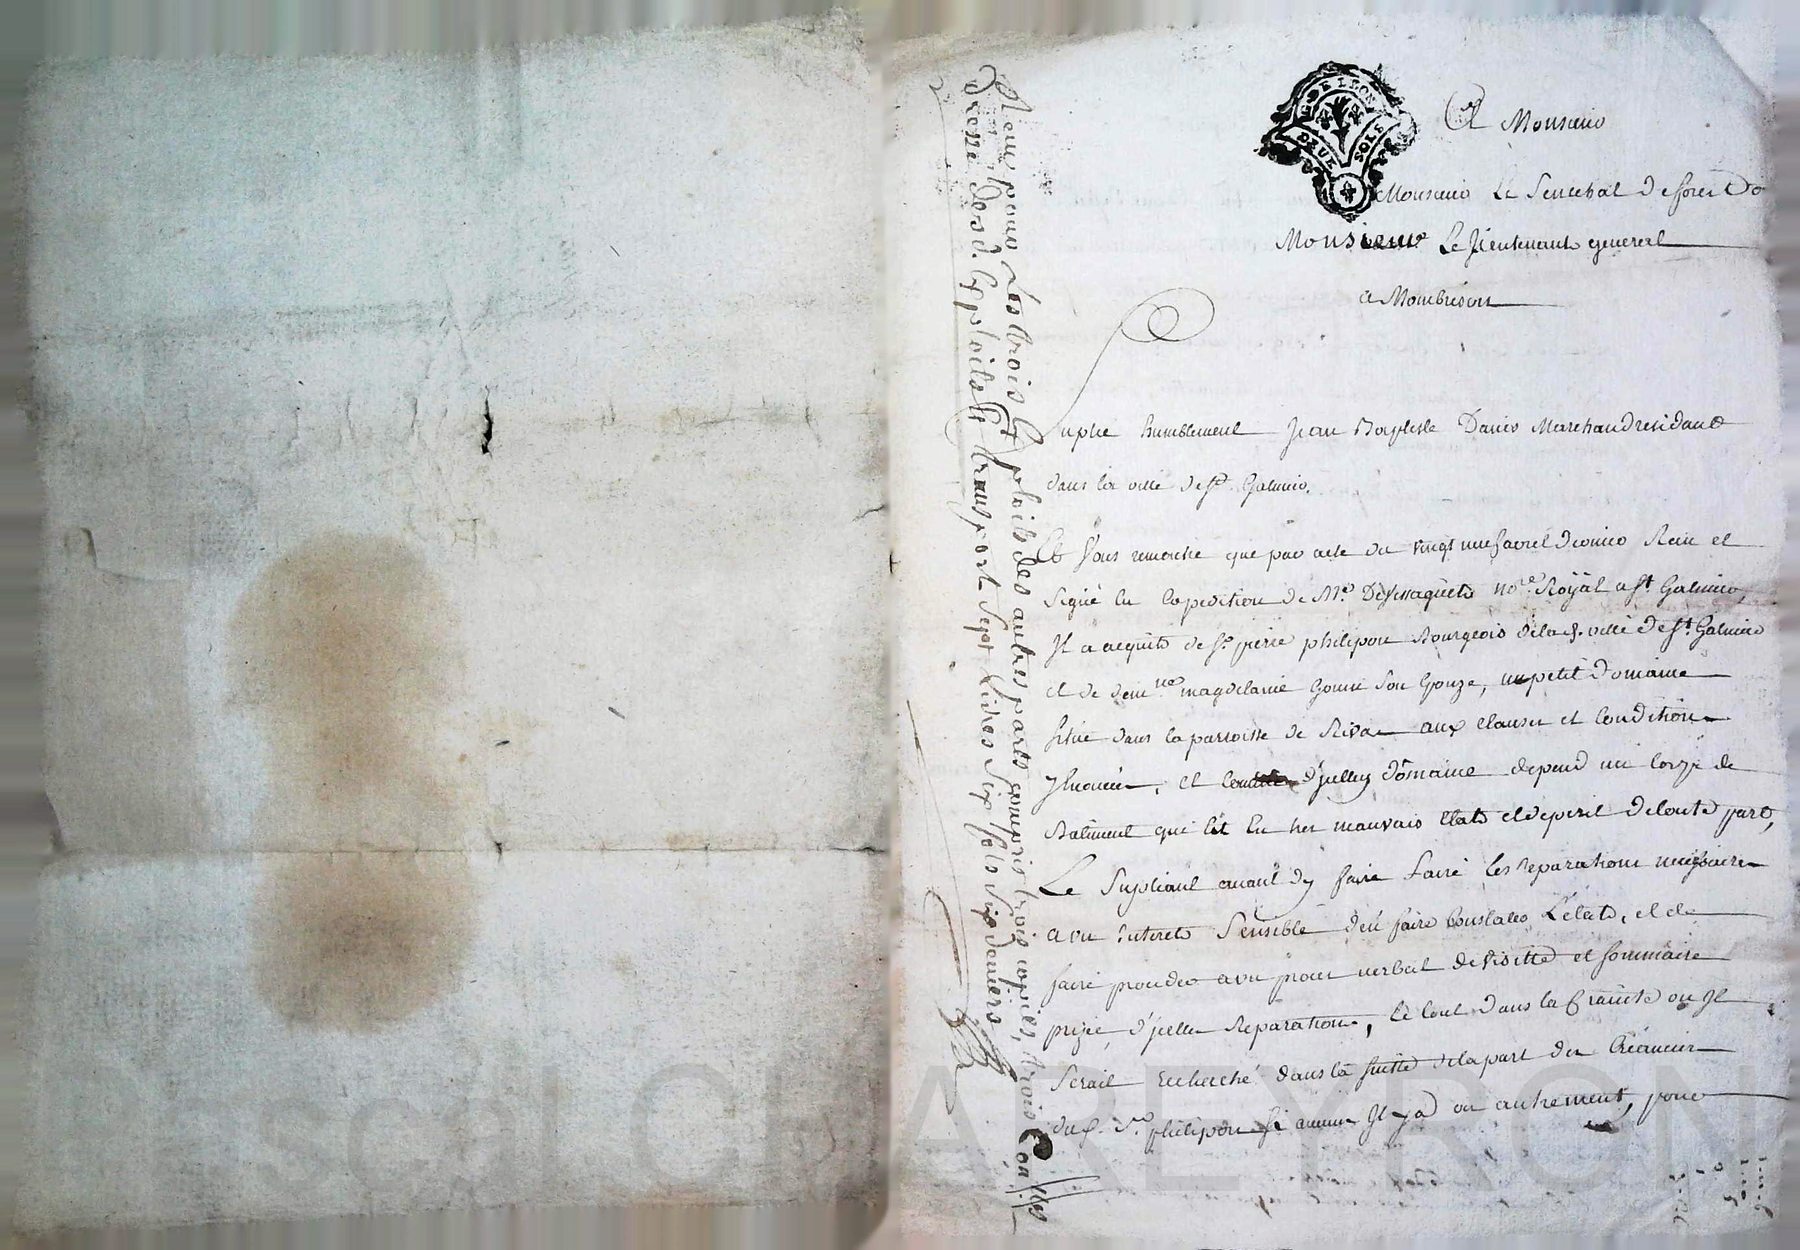 G. DE LEON
DEUX SOLS
A Monsieur
Monsieur Le Senechal de forest ou
Monsieur Le Lieutenant general
a Montbrison
Suplie humblement Jean Baptiste Marchand residant
dans la ville de St. Galmier.
Et Vous remontre que par acte du vingt neuf avril dernier Recu et
signé en Expedition de Me. nore. Royal a St. Galmier,
Il a acquis de Sr. pierre philipon Bourgeois de lad. ville de St. Galmier
et de dem.lle magdelaine son Epouze, un petit Domaine
situé dans la parroisse de Rivas aux clauses et Conditions
y Enoncées, et d'jcelluy domaine depend un Corps de
Batiment qui Est En tres mauvais Etat et deperit de toute part,
Le Supliant avant dy faire faire les Reparations necessaires
a un Interets Sensible d'en faire Constater L'etat, et de
faire proceder a un procès verbal de visitte et sommaire
prizée, d'jcelles Reparations, le tout dans la Crainte ou Il
serait recherché dans la suitte de la part des Créanciers
dud. Sr. philipon si aucuns Il y a ou autrement, pour
Reçu pour Les trois Exploits des autres parts compris trois copies, trois Conlles
dresse desd. Exploits Et transport Sept Livres Six sols Six deniers
Pascal CHAREYRON